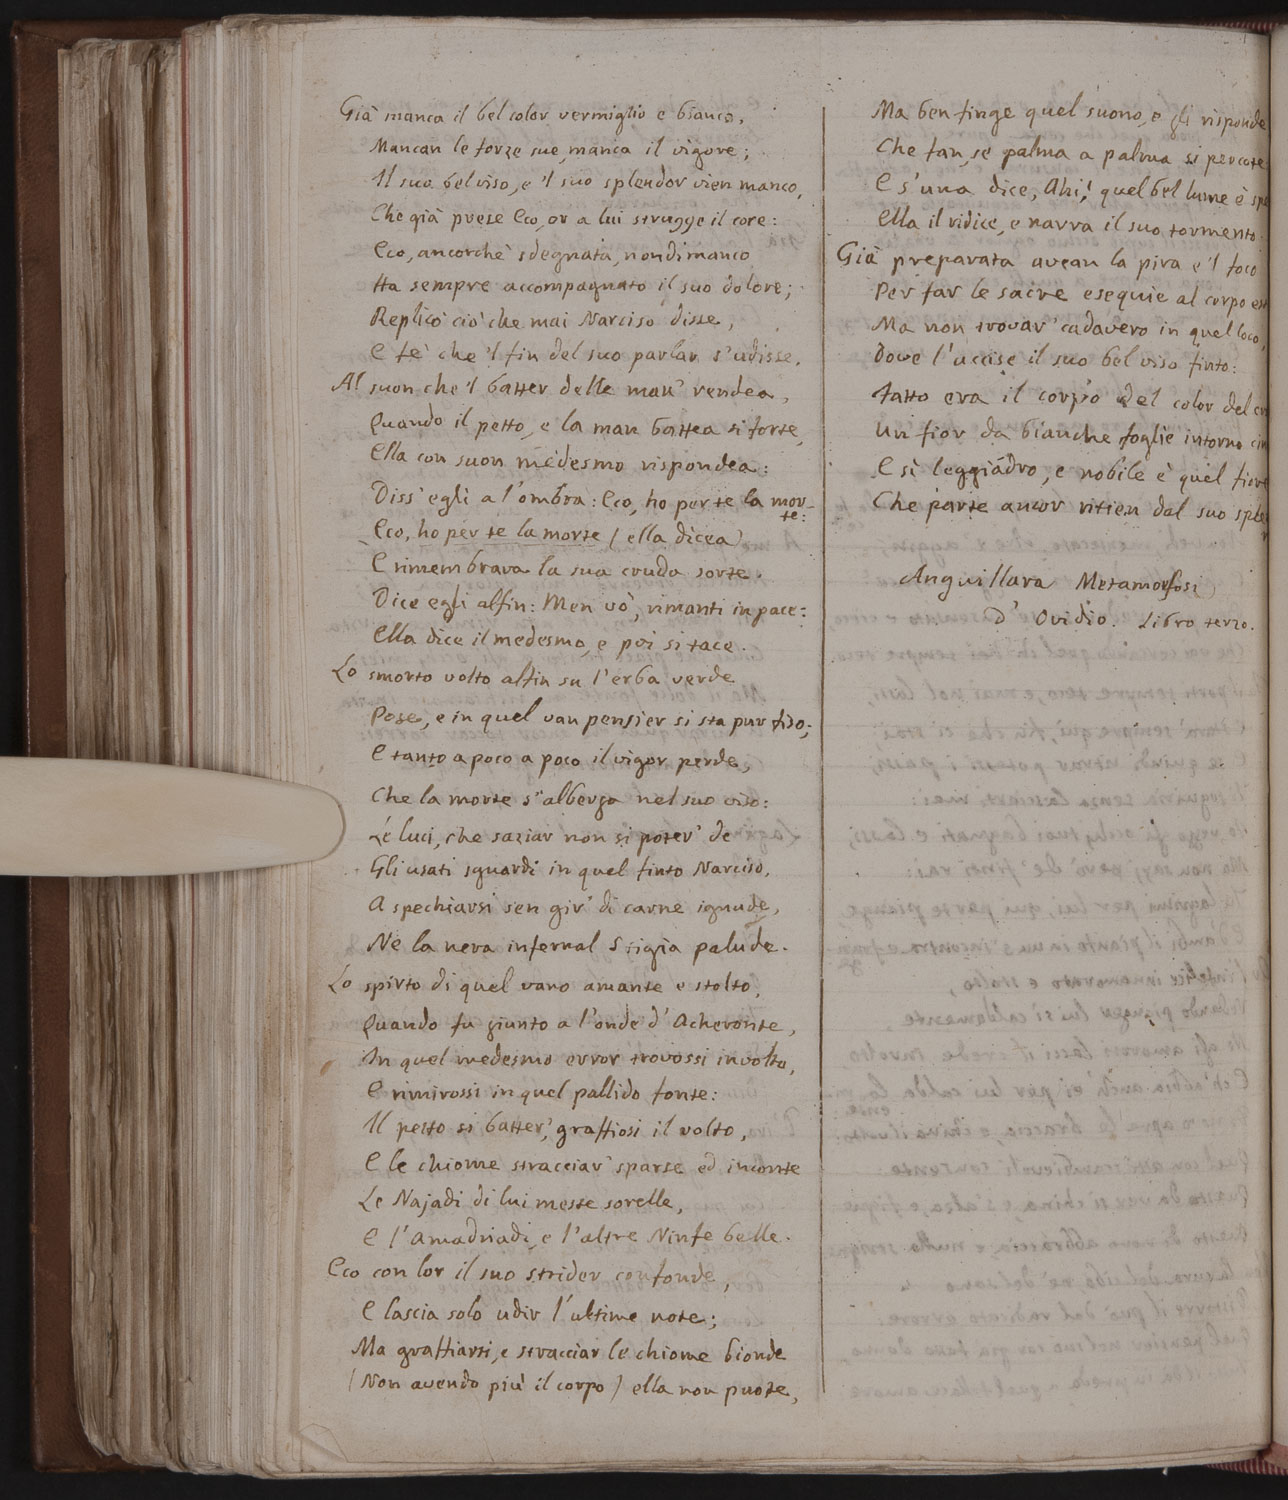 Già manca il bel color vermiglio e bianco,
Mancan le forze sue, manca il vigore;
Il suo bel viso, e 'l suo splendor vien manco,
Che già prese Eco, or a lui strugge il core:
Eco, ancorchè sdegnata, nondimanco
Ha sempre accompagnato il suo dolore;
Replicò ciò che mai Narciso disse,
E fè che 'l fin del suo parlar s'udisse.
Al suon che 'l batter delle man' rendea,
Quando il petto, e la man battea si forte,
Ella con suon medesmo rispondea:
Diss' egli a l'ombra: Eco, ho per te la mor-
te:
Eco, ho per te la morte (ella dicea)
E rimembrava la sua cruda sorte.
Dice egli alfin: Men vò, rimanti in pace:
Ella dice il medesmo, e poi si tace.
Lo smorto volto alfin su l'erba verde
Pose, e in quel van pensier si sta pur fiso;
E tanto a poco a poco il vigor perde,
Che la morte s'alberga nel suo viso:
Le luci, che saziar non si poter' de
Gli usati sguardi in quel finto Narciso,
A spechiarsi sen gir' di carne ignude,
Ne la nera infernal Stigia palude.
Lo spirto di quel vano amante e stolto,
Quando fu giunto a l'onde d'Acheronte,
In quel medesmo error trovossi involto,
E rimirossi in quel pallido fonte:
Il petto si batter', graffiosi il volto,
E le chiome stracciar' sparse ed inconte
Le Najadi di lui meste sorelle,
E l'Amadriadi, e l'altre Ninfe belle.
Eco con lor il suo strider confonde,
E lascia solo udir l'ultime note;
Ma graffiarsi, e stracciar le chiome bionde
(Non avendo più il corpo) ella non puote,
Ma ben finge quel suono, e gli risponde
Che fan, se palma a palma si percote
E s'una dice, Ahi! quel bel lume è
Ella il ridice, e narra il suo tormento.
Già preparata avean la pira e 'l foco
Per far le sacre esequie al corpo
Ma non trovar' cadavero in quel loco,
Dove l'uccise il suo bel viso finto:
Fatto era il corpo del color del
Un fior da bianche foglie intorno
E sì leggiadro, e nobile è quel fiore
Che parte ancor ritien dal suo
Anguillara Metamorfosi
d'Ovidio. Libro terzo.